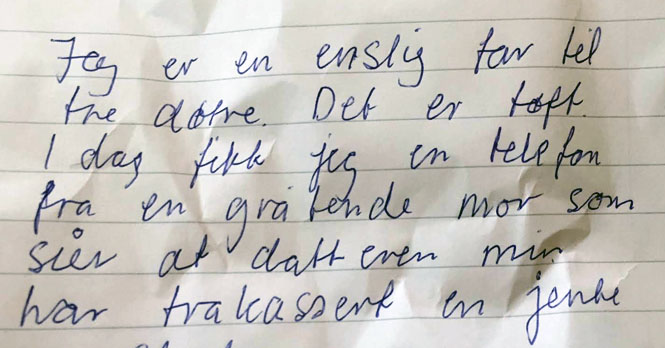 Jeg er en enslig far til
tre døtre. Det er tøft.
I dag fikk jeg en telefon
fra en gråtende mor som
sier at datteren min
har trakassert en jente